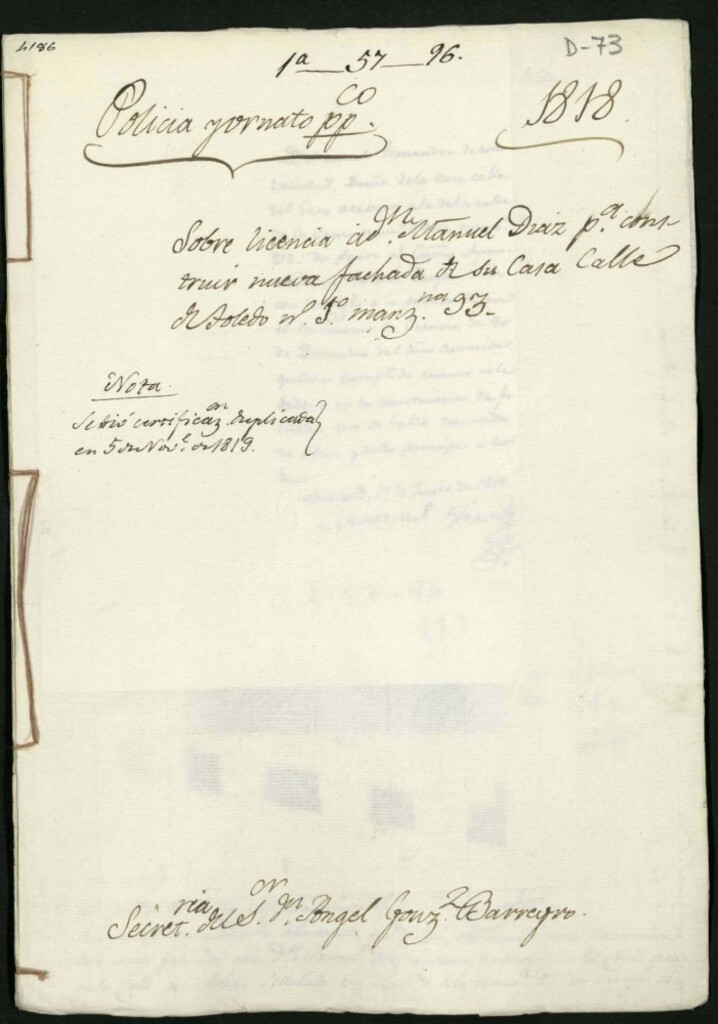 4186
1ª 57 96.
D-73
Policia y ornato ppCO.
1818
Sobre licencia á Dn. Manuel Diaz pª. cons-
truir nueva fachada de su Casa Calle
de Toledo nº. 1º manz.na 93-
Nota.
Se dió certificaz.on duplicada
en 5 de Nov.e de 1819.
Secret.ria del S.or Dn. Angel Gonz.z Barreyro.